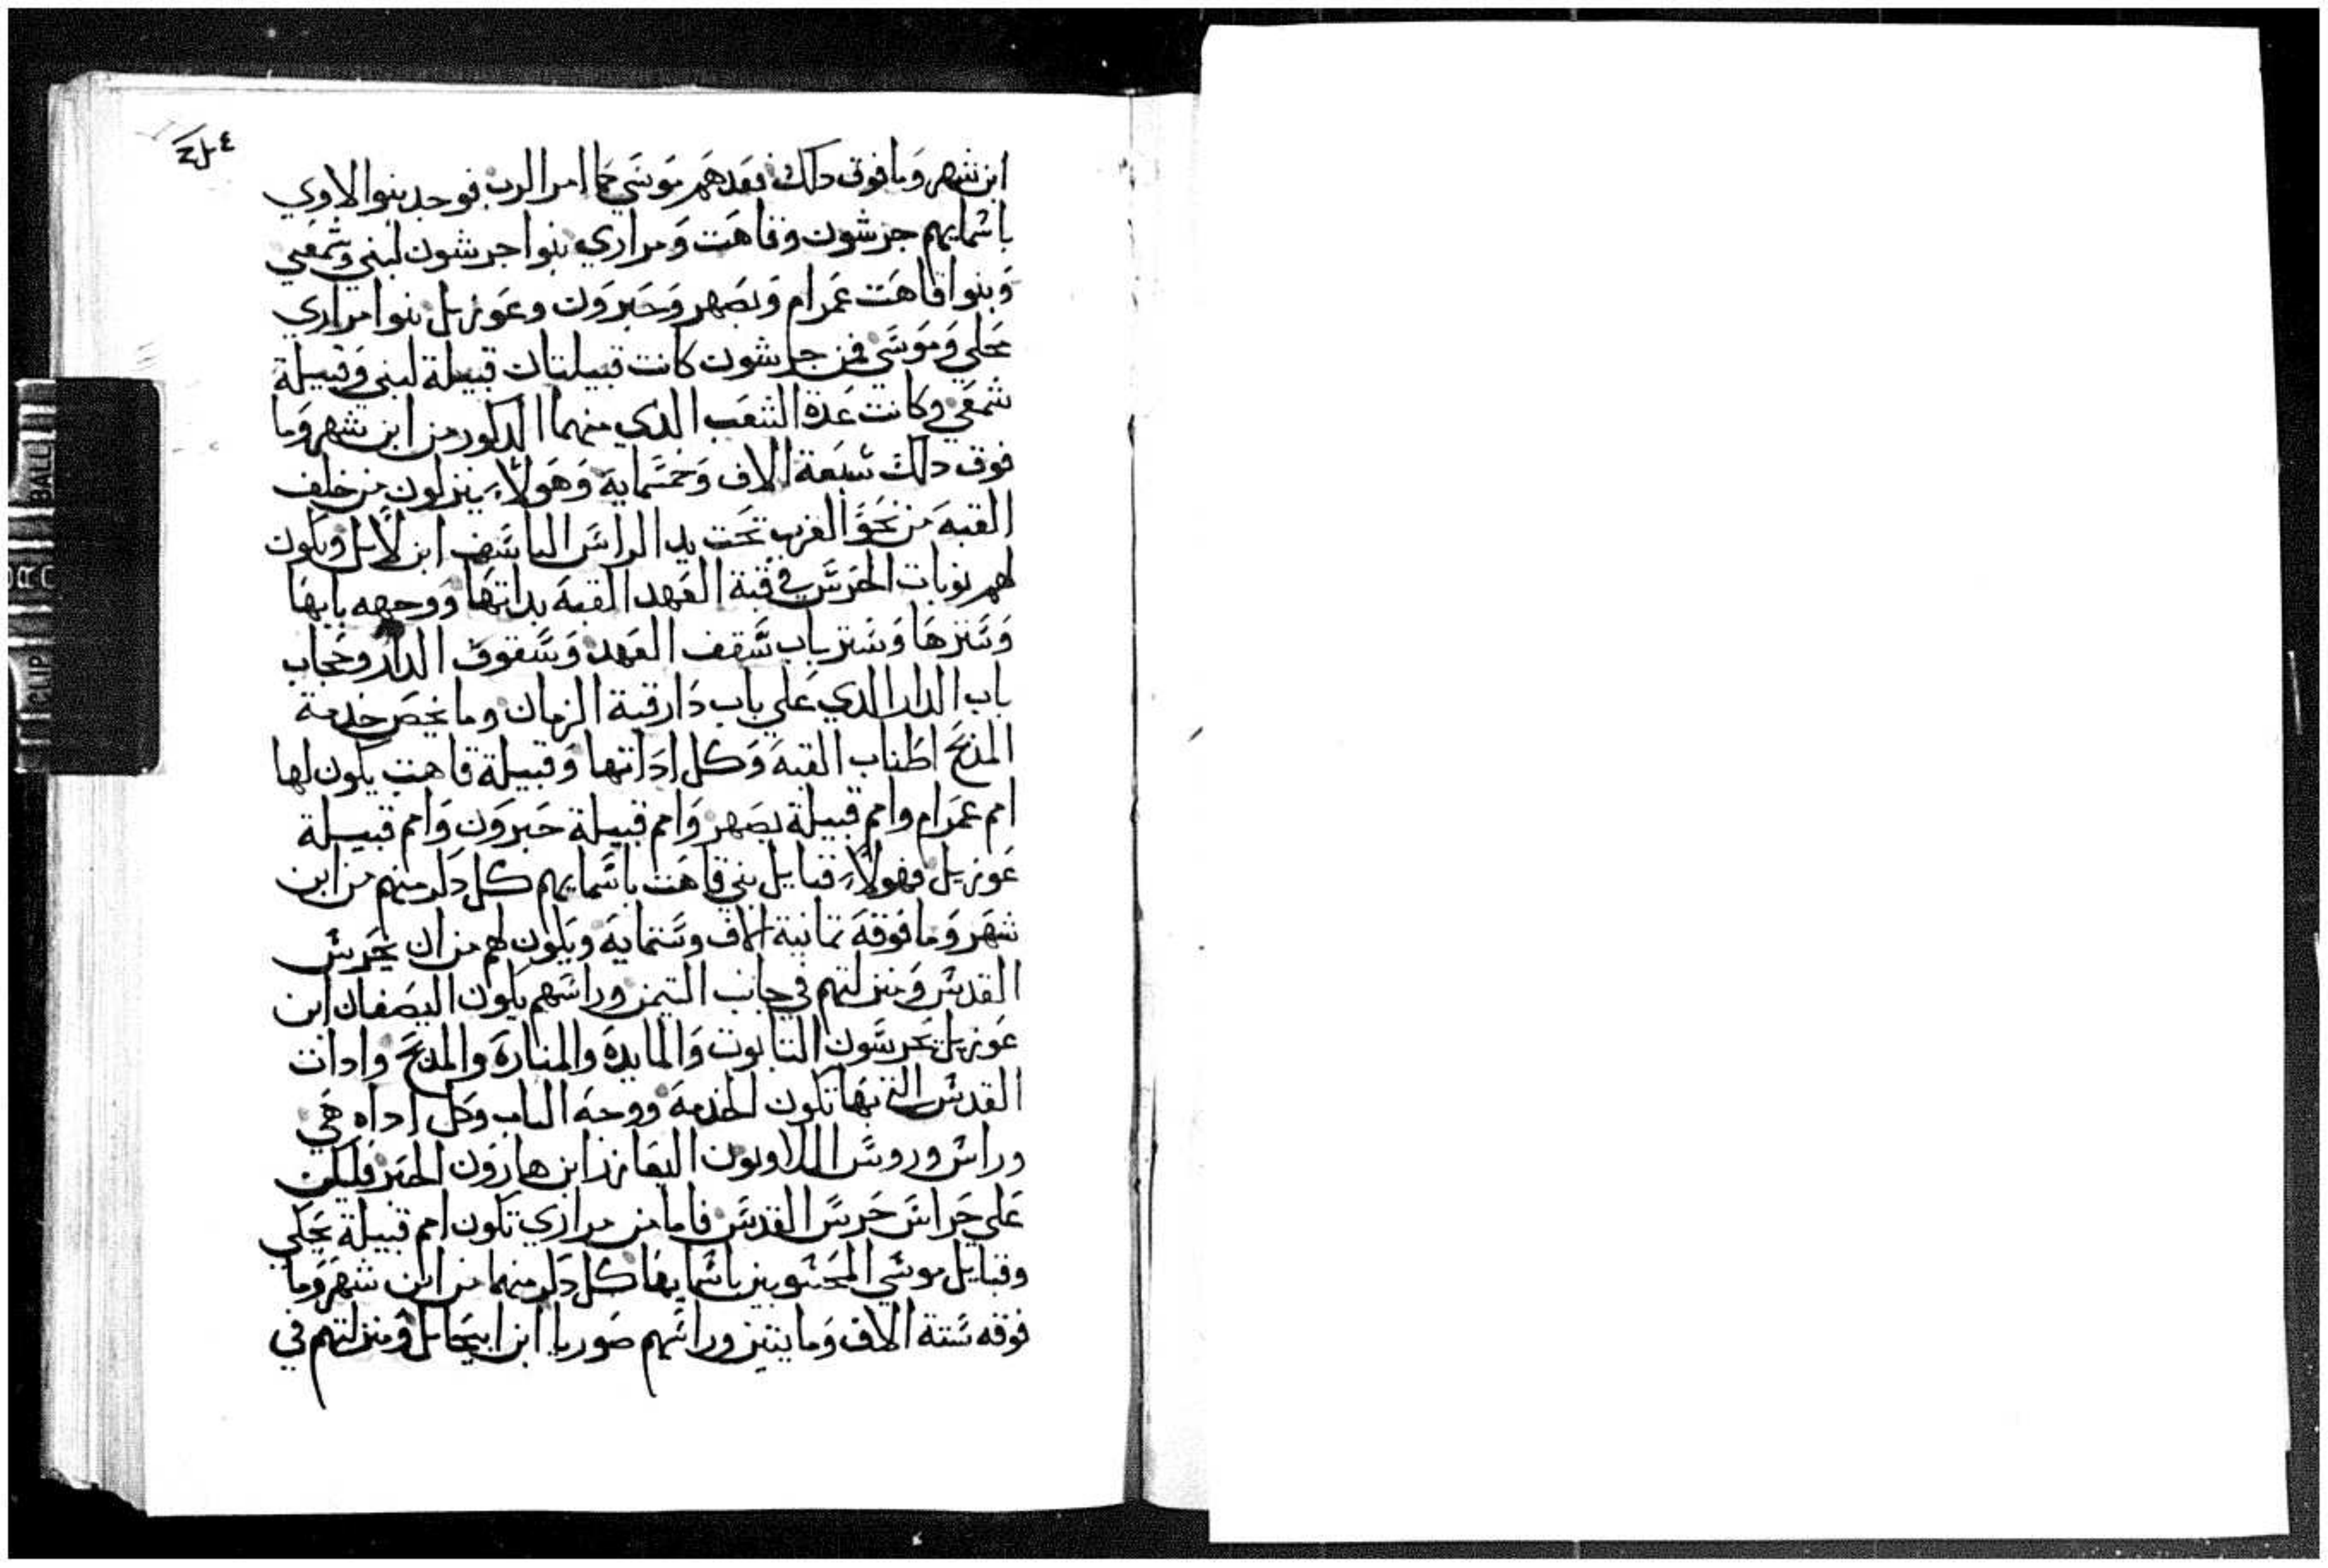 ابن شهر وما فوق دلك فعدهم موسي كما امر الرب فوجد بنوا لاوي
باسمايهم جرشون وقاهت ومراري بنوا جرشون لبني وشمعي
وبنوا قاهت عمرام ويصهر وحبرون وعوزيل بنوا مراري
محلي وموسي فمن جرشون كانت قبيلتان قبيلة لبني وقبيلة
شمعي وكانت عدة الشعب الدي منهما الدكور من ابن شهر وما
فوق دلك سبعة الاف وخمسماية وهولاء ينزلون من خلف
القبة من نحو الغرب تحت يد الراس الياسف ابن لايل ويكون
لهم نوبات الحرس في قبة العهد القبة بداتها ووجهه بابها
وسترها وستر باب سقف العهد وسقوف الدار وحجاب
باب الدار الدي علي باب دار قبة الزمان وما يخص خدمة
المذبح اطناب القبة وكل اداتها وقبيلة قاهت يكون لها
امم عمرام وامم قبيلة يصهر وامم قبيلة حبرون وامم قبيلة
عوزيل فهولاء قبايل بني قاهت باسمايهم كل دكر منهم من ابن
شهر وما فوقه تمانية الاف وستماية ويكون لهم من ان يحرس
القدس ومنزلتهم في جانب التيمن وراسهم يكون اليصفان ابن
عوزيل يحرسون التابوت والمايدة والمنارة والمذبح وادات
القدس التي بها تكون الخدمة ووجه الباب وكل اداه هي
وراس وروس اللاويون اليعازر ابن هارون الحبر فليكن
علي حراس حرس القدس فاما من مراري تكون امم قبيلة محلي
وقبايل موسي المحسوبين باسمايها كل دكر منهما من ابن شهر وما
فوقه ستة الاف ومايتين وراسهم صوريا ابن ابيحايل ومنزلتهم في